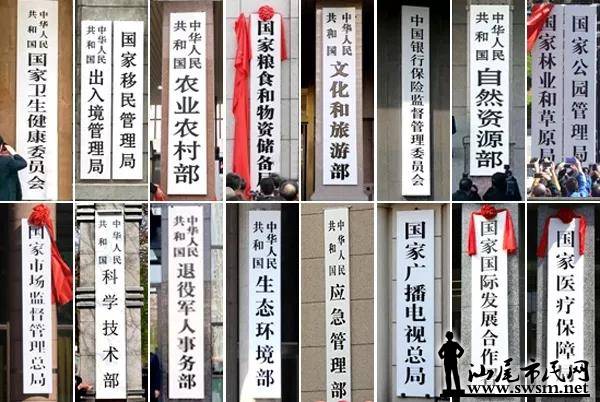 中华人民
共和国
国家卫生健康委员会
国家移民管理局
中华人民
共和国
出入境管理局
中华人民
共和国
农业农村部
国家粮食和物资储备局
中华人民
共和国
文化和旅游部
中国银行保险监督管理委员会
中华人民
共和国
自然资源部
国家公园管理局
国家林业和草原局
国家市场监督管理总局
中华人民
共和国
科学技术部
中华人民
共和国
退役军人事务部
中华人民
共和国
生态环境部
中华人民
共和国
应急管理部
国家广播电视总局
国家国际发展合作
国家医疗保障
汕尾市民网
www.swsm.net